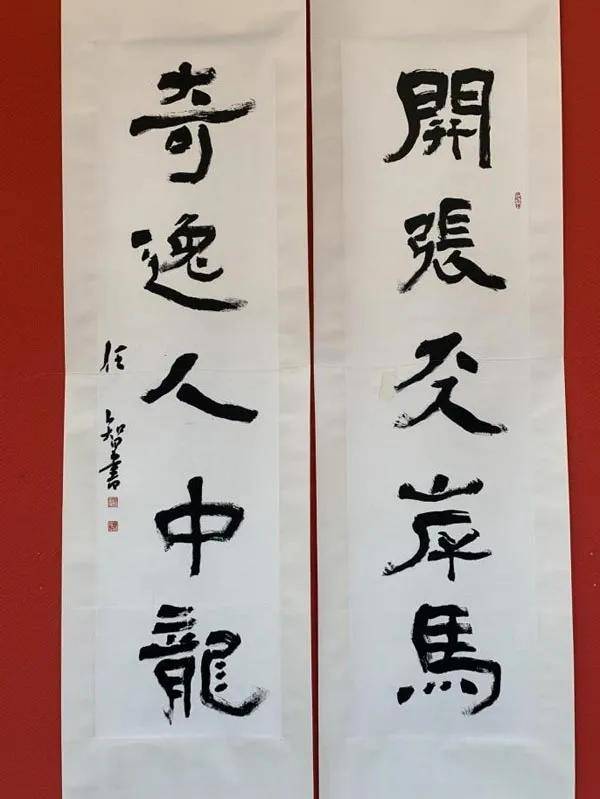 開張天岸馬
奇逸人中龍
智書